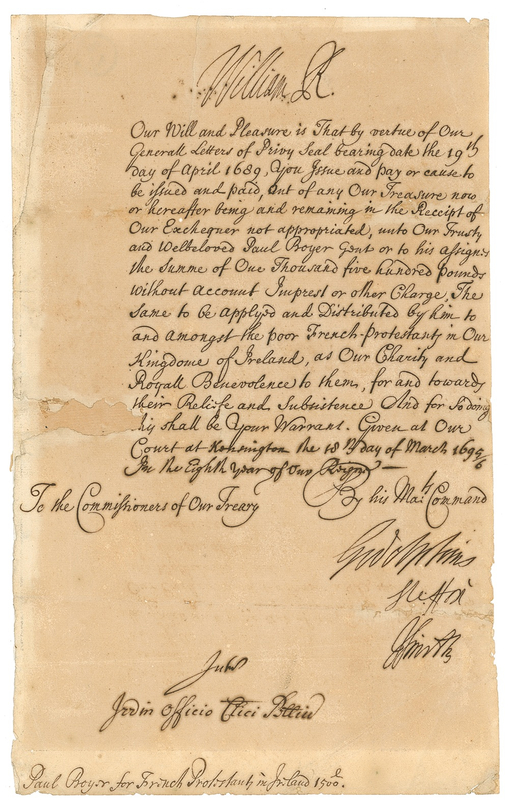 William R.
Our Will and Pleasure is That by vertue of Our
Generall Letters of Privy Seal bearing date the 19th
day of April 1689. You Issue and pay or cause to
be issued and paid, out of any Our Treasure now
or hereafter being and remaining in the Receipt of
Our Exchequer not appropriated, unto Our Trusty
and Welbeloved Paul Royer Gent or to his assignes
the Summe of One Thousand five hundred pounds
without Account Imprest or other Charge, The
same to be applyed and Distributed by him to
and amongst the poor French-Protestants in Our
Kingdome of Ireland, as Our Charity and
Royall Benevolence to them, for and towards
their Reliefe and Subsistence And for so doing
this shall be Your Warrant. Given at Our
Court at Kensington the 18th day of March 1695/6
In the Eighth Year of Our Reigne
To the Commissioners of Our Treary
By his Mats Command
Godolphin
Ste: Fox
J Smith
Officio
Paul Royer for French Protestants in Ireland 1500l.